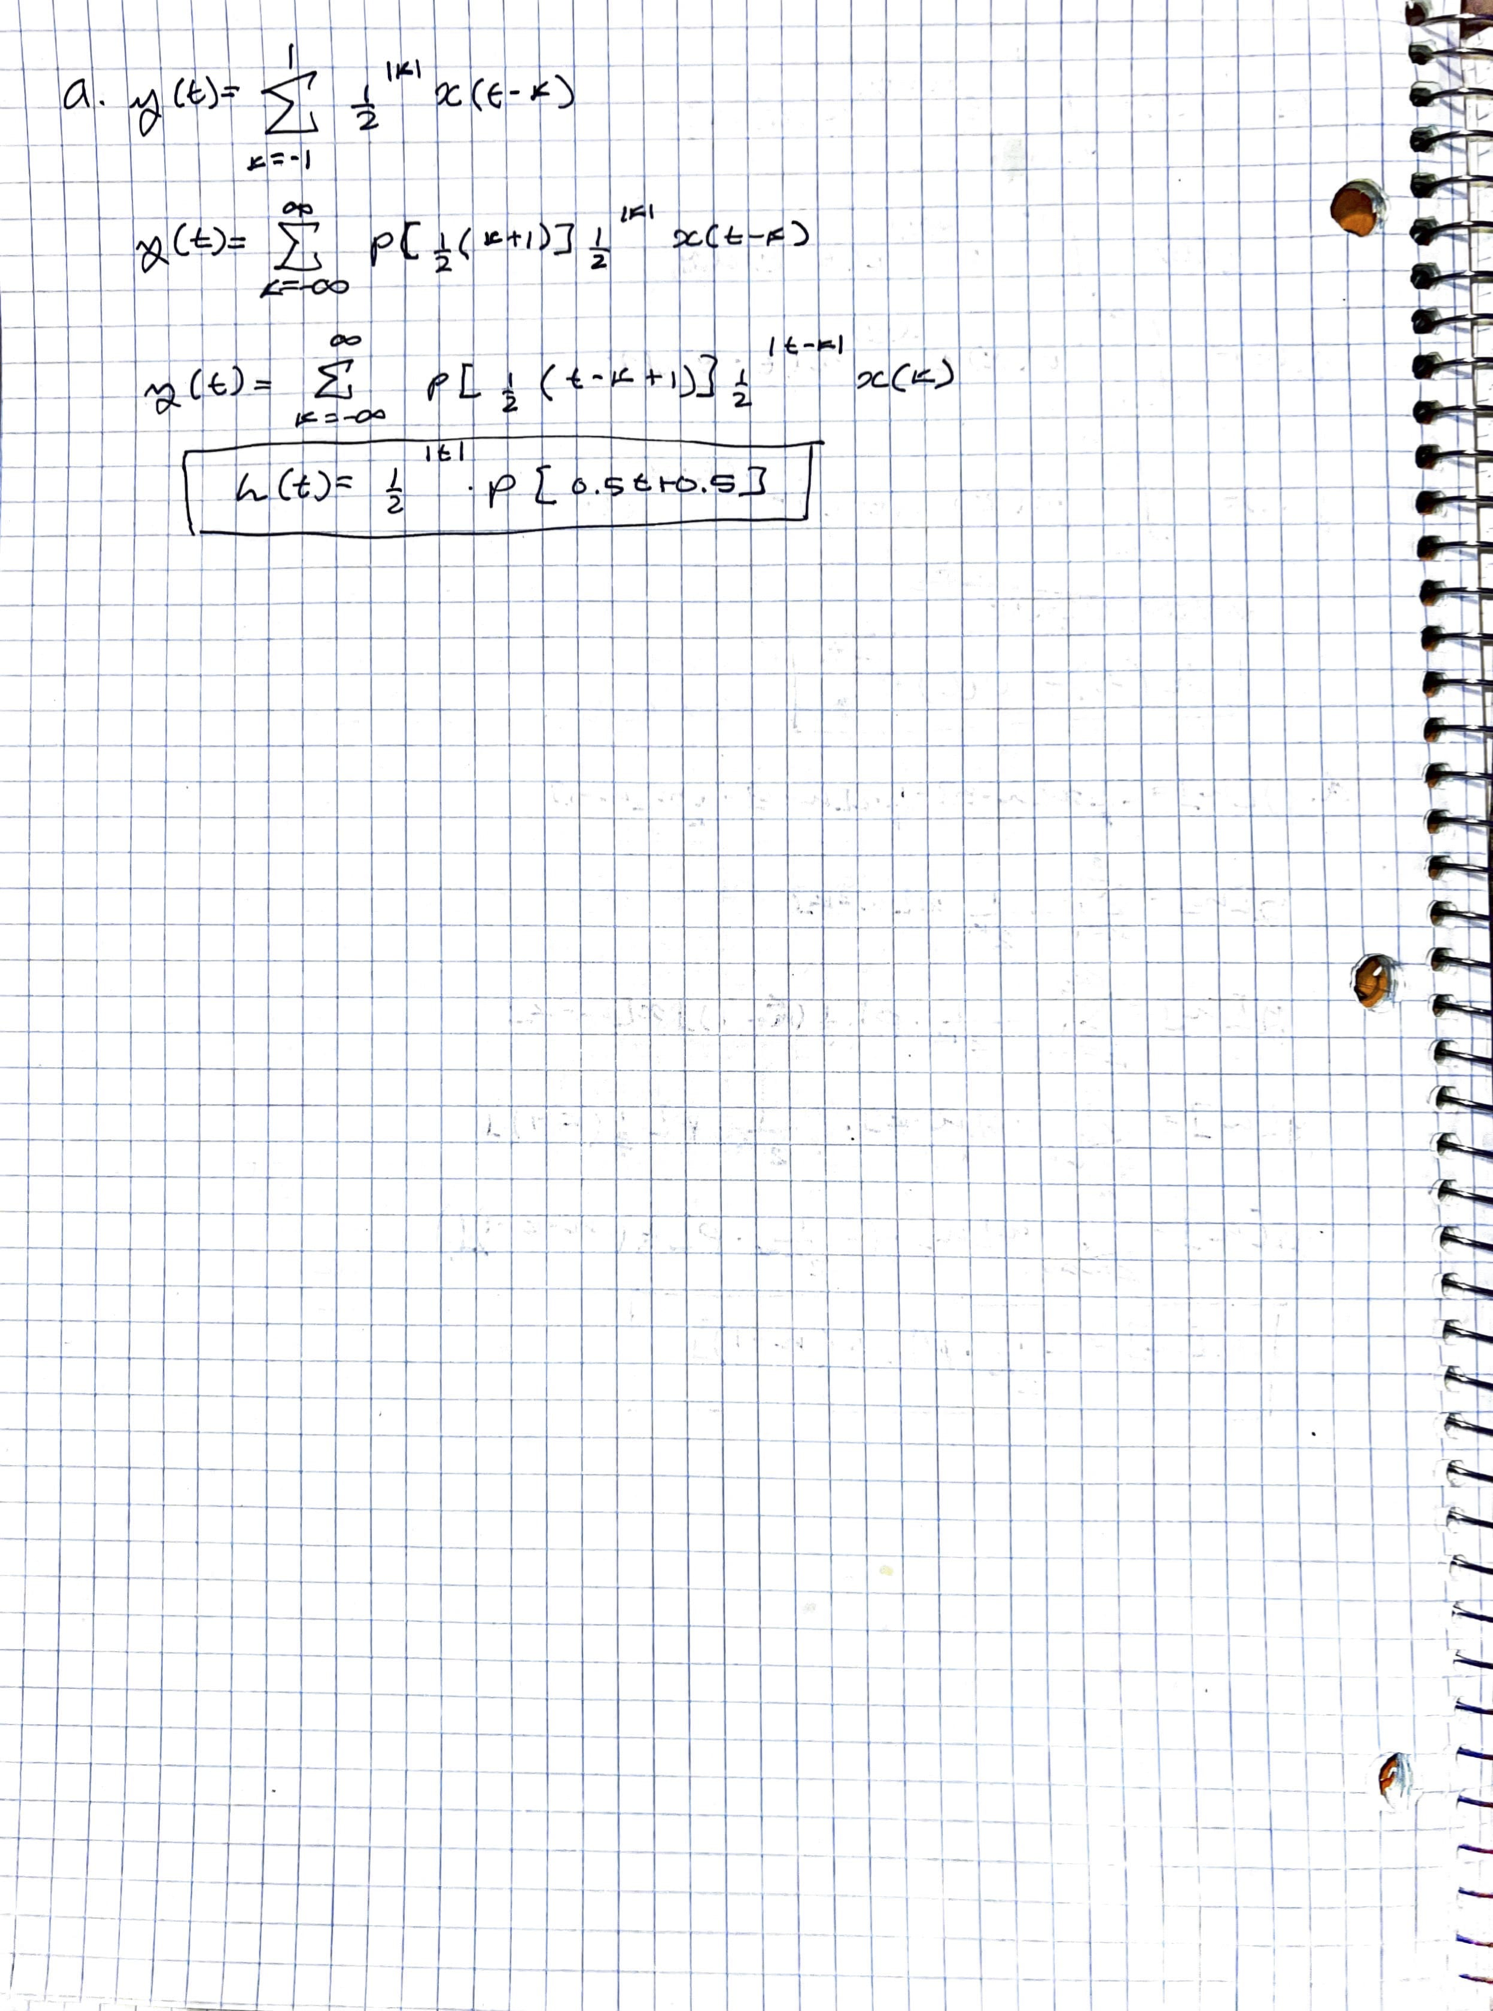 a. y(t)= ∑_{k=-1}^{1} ½^{|k|} x(t-k)
y(t)= ∑_{k=-∞}^{∞} p[½(k+1)] ½^{|k|} x(t-k)
y(t)= ∑_{k=-∞}^{∞} p[½(t-k+1)] ½^{|t-k|} x(k)
h(t)= ½^{|t|} · p[0.5t+0.5]